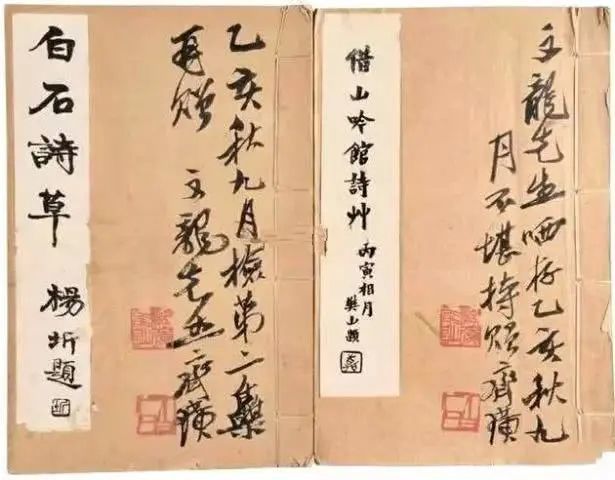 文龍先生哂存乙亥秋九
月不堪持贈齊璜
借山吟館詩艸
丙寅相月
樊山題
乙亥秋九月撿第二集
再贈
文龍先生齊璜
白石詩草
楊圻題